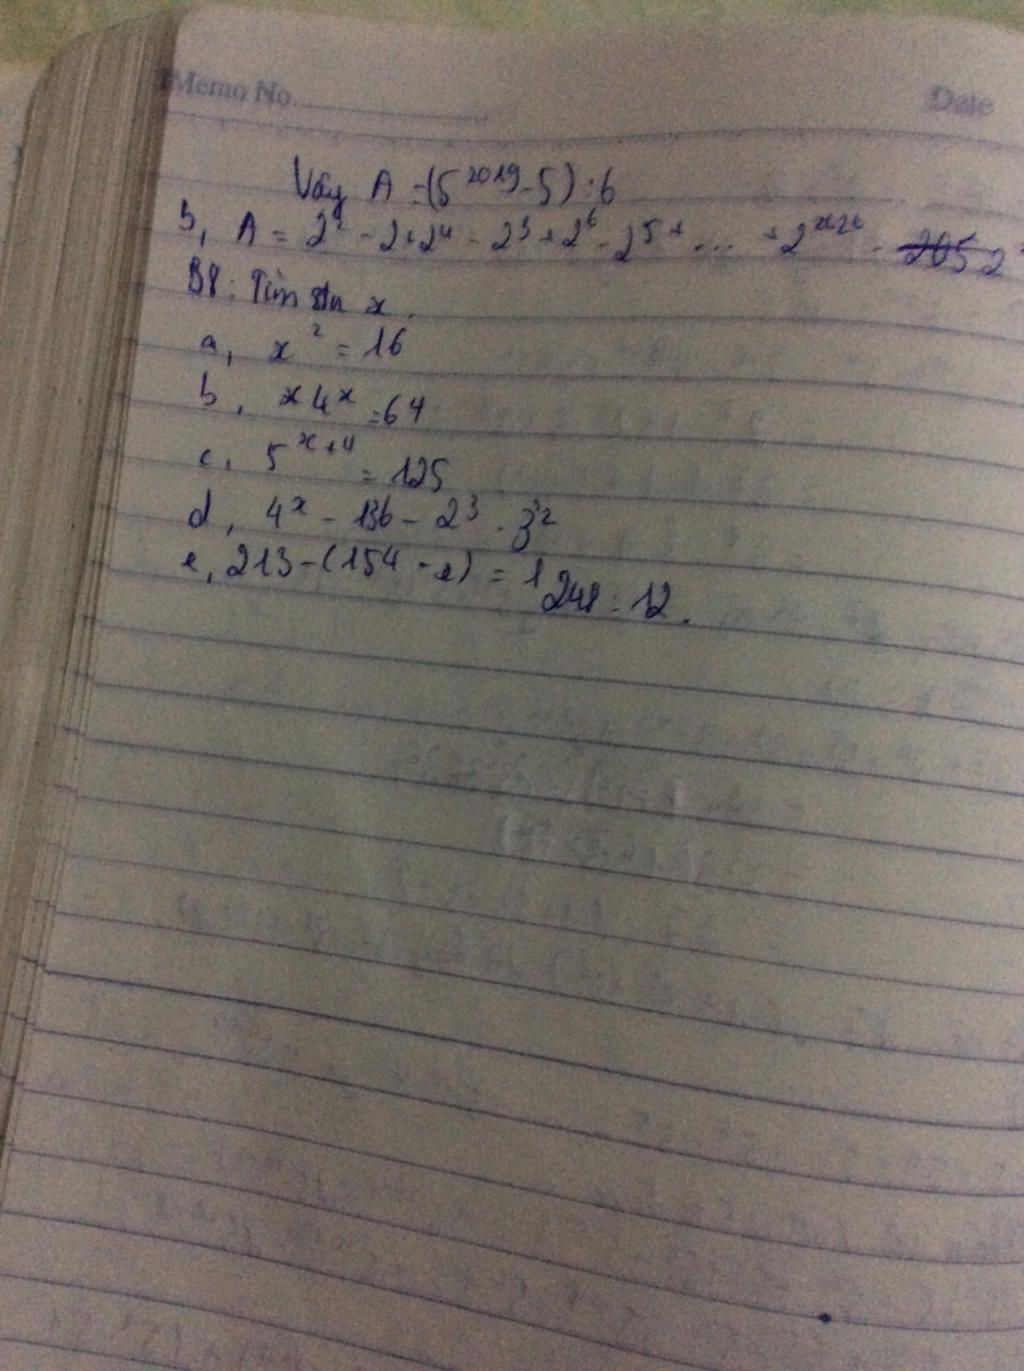 Memo No. Date
Vậy A = (5²⁰¹⁹ - 5) : 6
b, A = 2² - 2 + 2⁴ - 2³ + 2⁶ - 2⁵ + ... + 2²⁰²⁶ - 2
B8: Tìm x.
a, x² = 16
b, x4ˣ = 64
c, 5ˣ⁺⁴ = 125
d, 4ˣ - 136 - 2³ . 3²
e, 213 - (154 - x) = 1248 : 12.